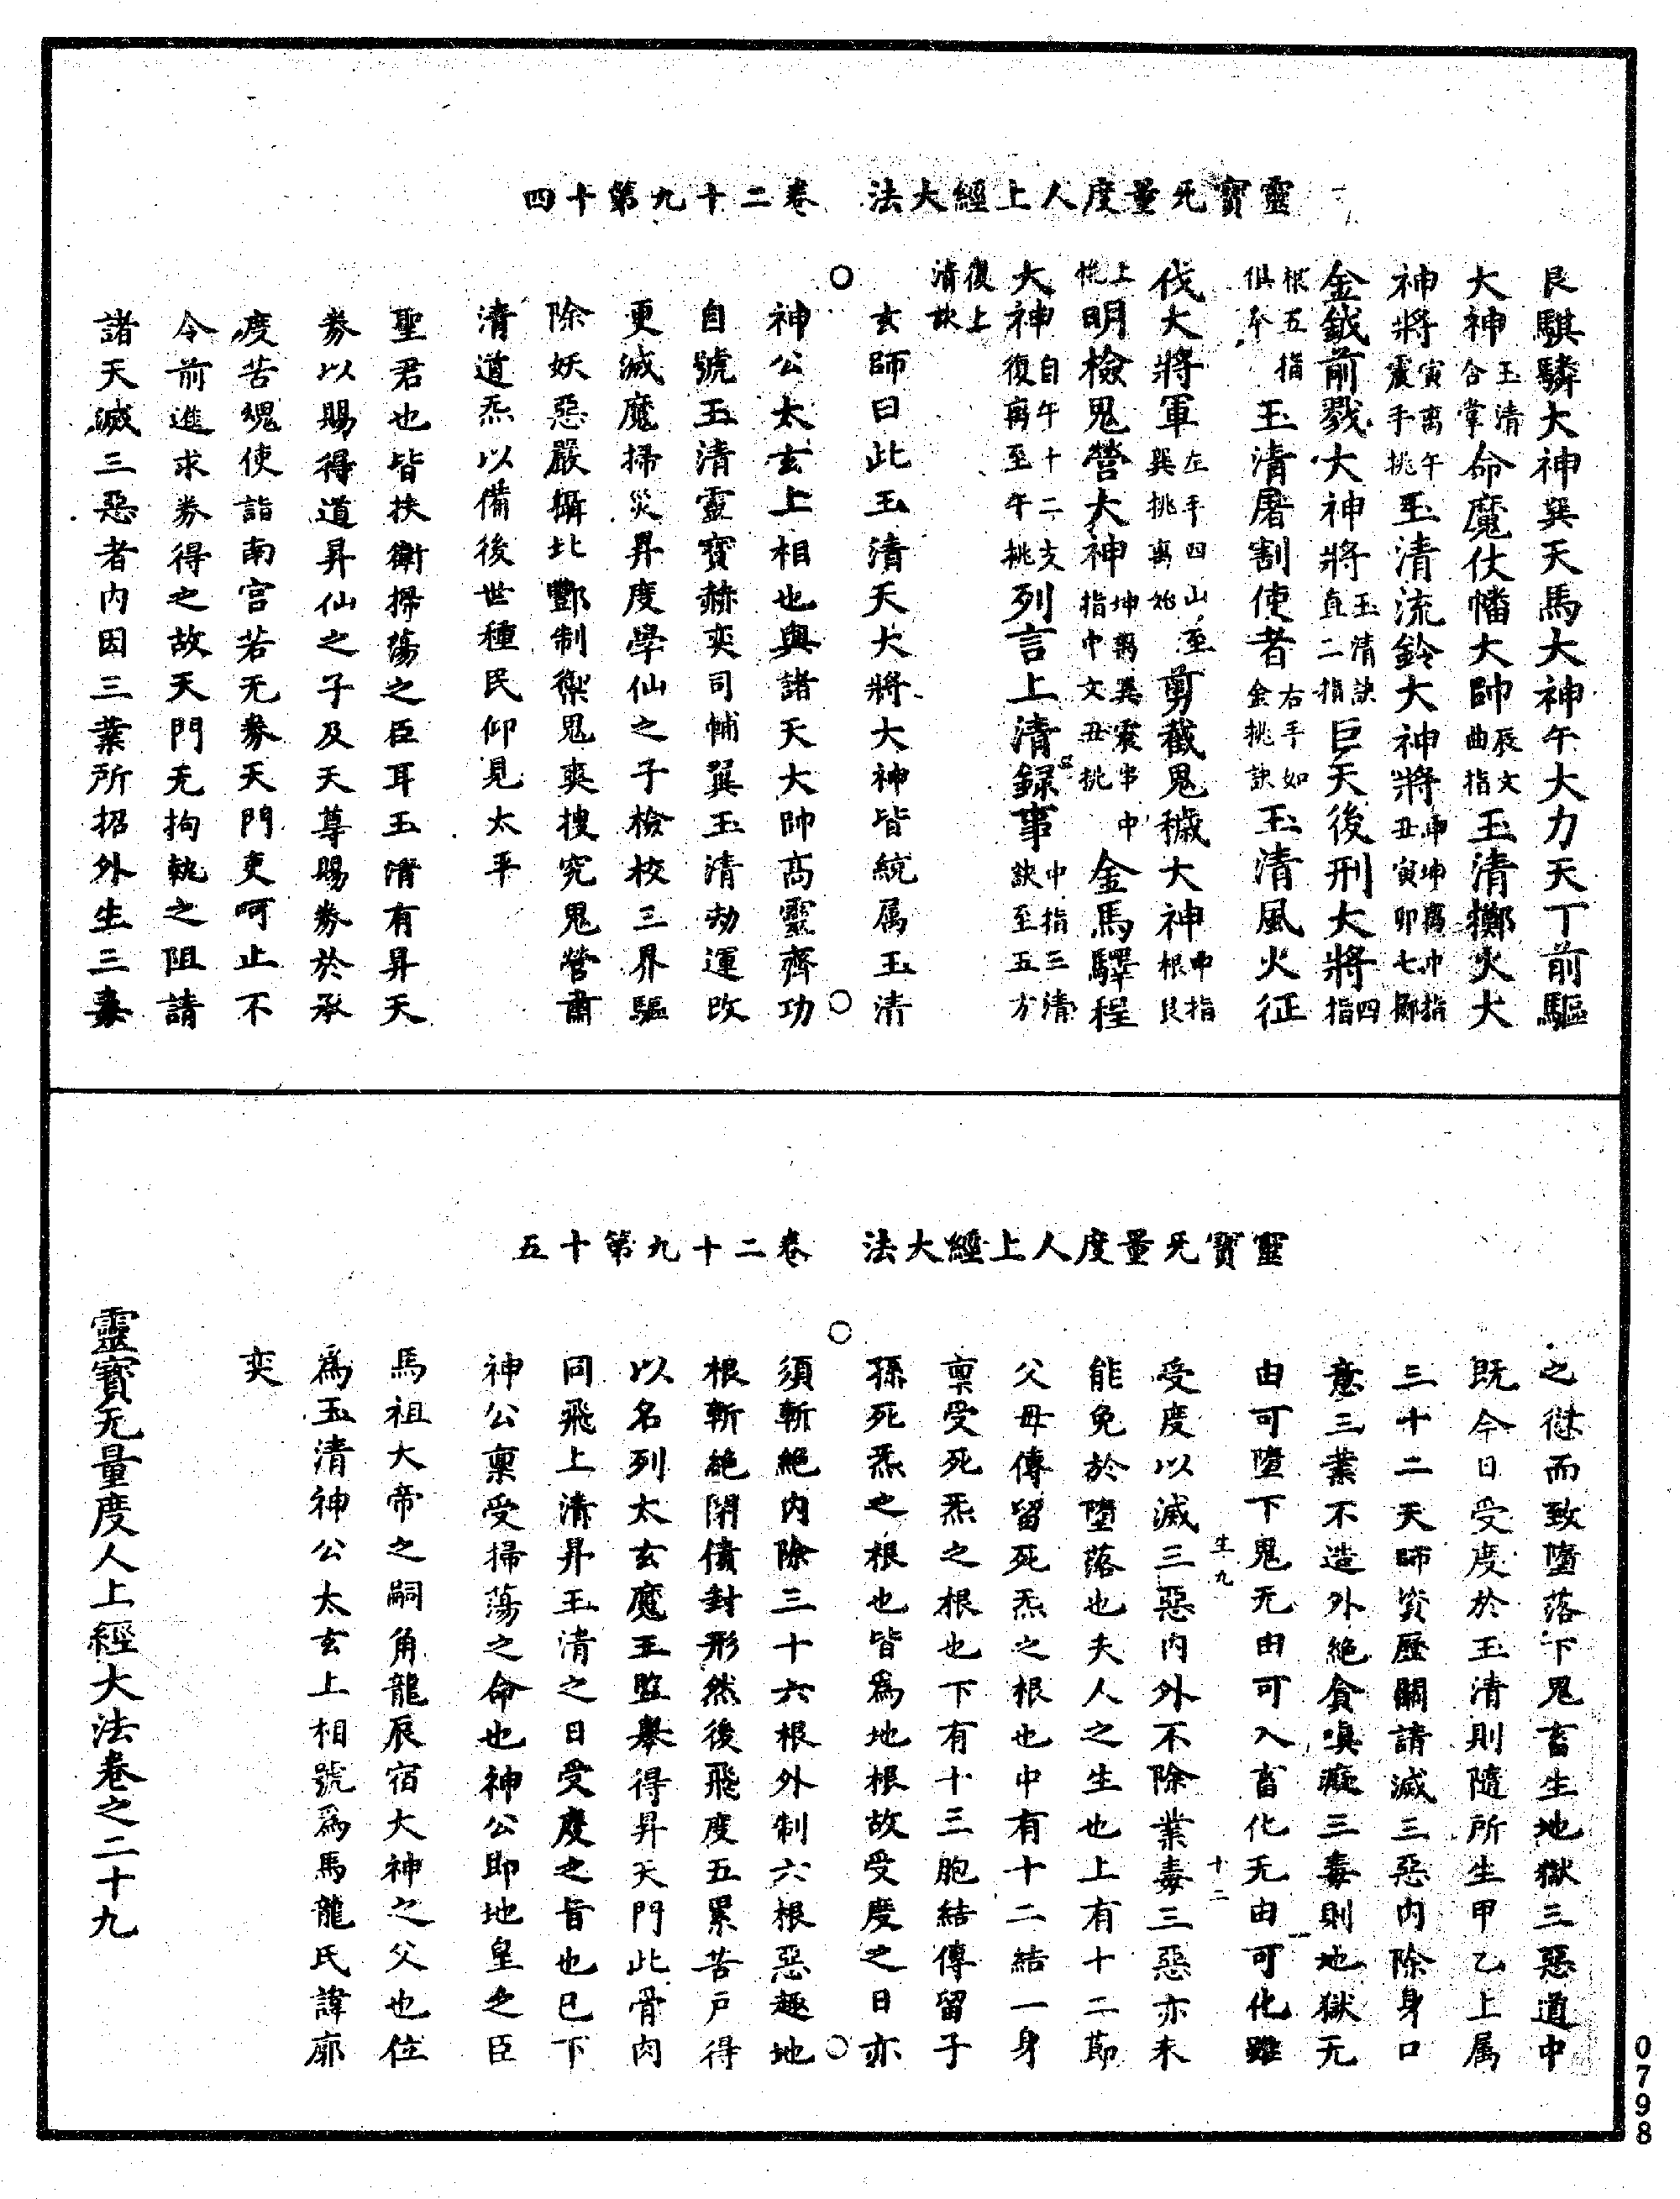 靈寶无量度人上經大法　卷二十九第十四
艮騏驎大神巽天馬大神午大力天丁前驅
大神玉清合掌命魔仗幡大帥辰文曲指玉清擲火大
神將寅离午震手挑玉清流鈴大神將申坤离中指丑寅卯七擲
金鉞前戮大神將玉清訣直二指巨天後刑大將四指
根五指俱卒玉清屠割使者右手如金挑訣玉清風火征
伐大將軍左手四山至巽挑离訖剪截鬼穢大神中指根艮
上恍明檢鬼營大神坤离巽震串中指中文丑挑金馬驛程
大神自午十二支復再至午挑列言上清録事中指三清訣至五方
復上清訣
玄師曰此玉清天大將大神皆統属玉清
神公太玄上相也與諸天大帥高靈齊功
自號玉清靈寶赫奕司輔巽玉清劫運改
更滅魔掃災昇度學仙之子檢校三界驅
除妖惡嚴攝北酆制禦鬼爽搜究鬼營肅
清道炁以備後世種民仰見太平
聖君也皆扶衛掃蕩之臣耳玉清有昇天
券以賜得道昇仙之子及天尊賜券於承
度苦魂使詣南宫若无券天門吏呵止不
令前進求券得之故天門无拘執之阻請
諸天滅三惡者内因三業所招外生三毒
靈寶无量度人上經大法　卷二十九第十五
之愆而致墮落下鬼畜生地獄三惡道中
既今日受度於玉清則隨所生甲乙上属
三十二天師資歷關請滅三惡内除身口
意三業不造外絶貪嗔癡三毒則地獄无
由可墮下鬼无由可入畜化无由可化雖
生九　十二
受度以滅三惡内外不除業毒三惡亦未
能免於墮落也夫人之生也上有十二節
父母傳留死炁之根也中有十二結一身
稟受死炁之根也下有十三胞結傳留子
孫死炁之根也皆爲地根故受度之日亦
須斬絶内除三十六根外制六根惡趣地
根斬絶閉債封形然後飛度五累苦戸得
以名列太玄魔王監舉得昇天門此骨肉
同飛上清昇玉清之日受度之旨也已下
神公稟受掃蕩之命也神公即地皇之臣
馬祖大帝之嗣角龍辰宿大神之父也位
爲玉清神公太玄上相號爲馬龍氏諱廓
奕
靈寶无量度人上經大法卷之二十九
0798